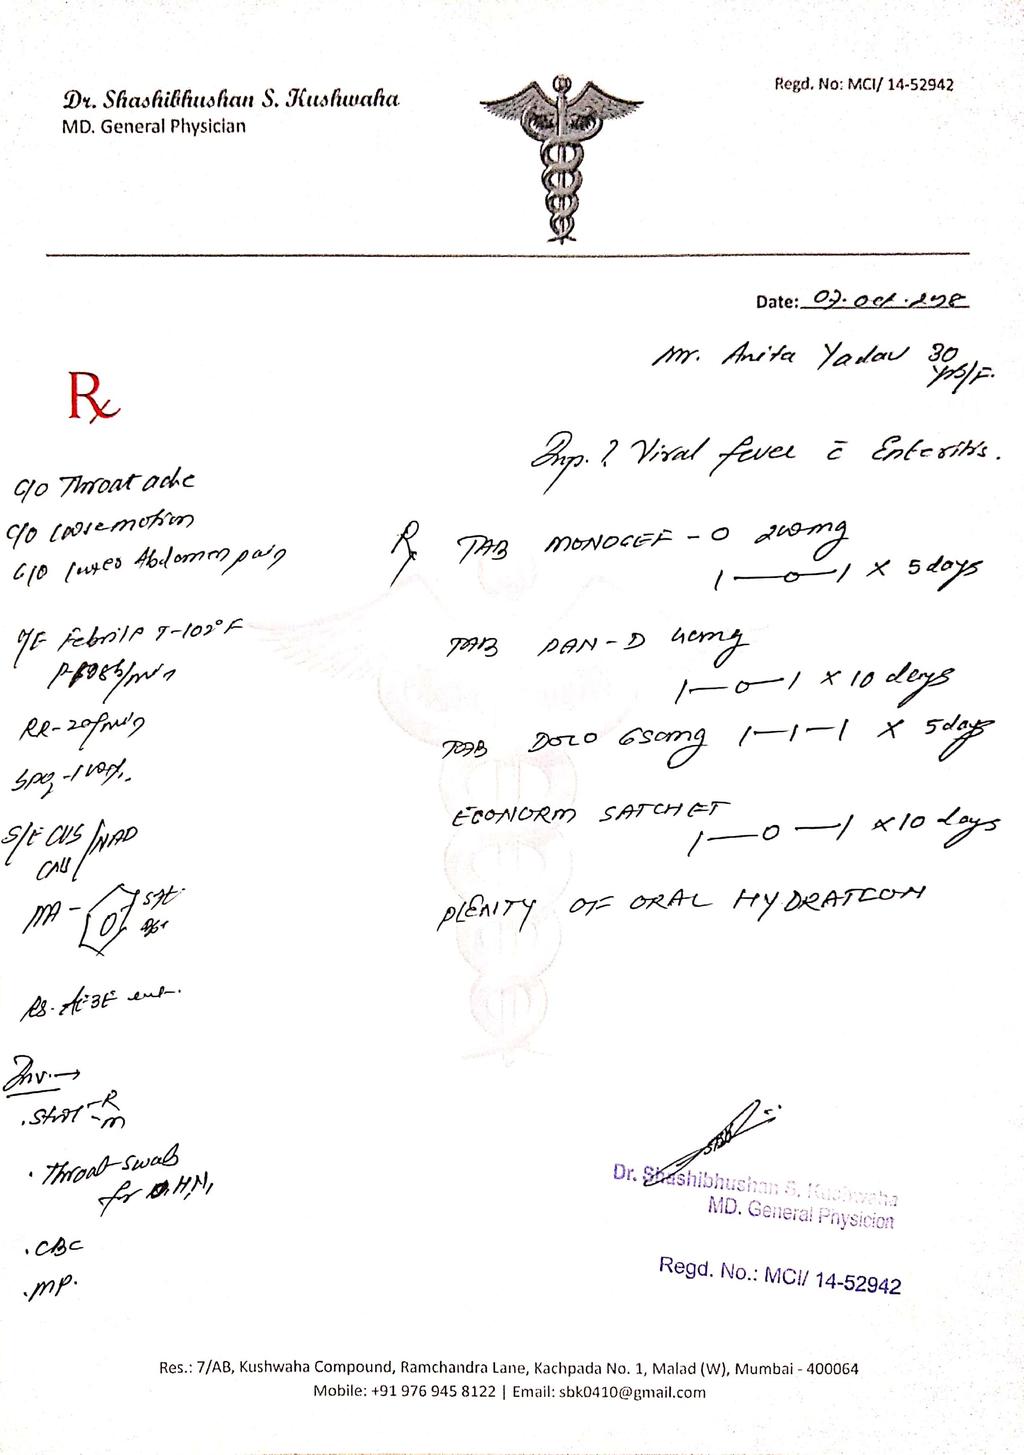 Dr. Shashibhushan S. Kushwaha
MD. General Physician
Regd. No: MCI/ 14-52942
Date: 07. Oct.
Mr. Anita Yadav 30
yrs/F.
Rx
Imp. ? Viral fever c̄ Enteritis.
C/O Throat ache
C/O Loose motion
C/O Abdomen pain
O/E Febrile T-102°F
P- /min
RR-20/min
SPO2 -
S/E CVS/NAD
CNS
PA - Soft
Rs- AEBE
Inv. →
. Stool -R
-m
. Throat swab
for H1N1
. CBC
. MP.
Rx TAB MONOCEF - O 200mg
1—o—1 X 5 days
TAB PAN-D 40mg
1—o—1 X 10 days
TAB DOLO 650mg 1—1—1 X 5 days
ECONORM SATCHET
1—o—1 X 10 days
PLENTY OF ORAL HYDRATION
Dr. Shashibhushan S. Kushwaha
MD. General Physicion
Regd. No.: MCI/ 14-52942
Res.: 7/AB, Kushwaha Compound, Ramchandra Lane, Kachpada No. 1, Malad (W), Mumbai - 400064
Mobile: +91 976 945 8122 | Email: sbk0410@gmail.com